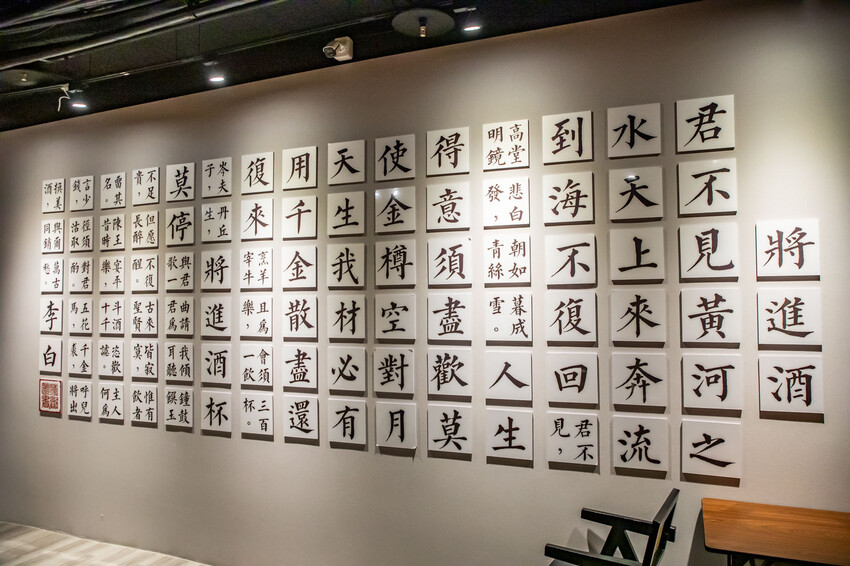 將進酒
君不見黃河之
水天上來奔流
到海不復回君不見，
高堂明鏡悲白發，朝如青絲暮成雪。人生
得意須盡歡莫
使金樽空對月
天生我材必有
用千金散盡還
復來烹羊宰牛且爲樂，會須一飲三百杯。
岑夫子，丹丘生，將進酒杯
莫停與君歌一曲請君爲我傾耳聽鐘鼓饌玉
不足貴，但愿長醉不復醒。古來聖賢皆寂寞，惟有飲者
留其名。陳王昔時宴平樂，斗酒十千恣歡謔。主人何爲
言少錢，徑須沽取對君酌。五花馬，千金裘，呼兒將出
換美酒，與爾同銷萬古愁。李白